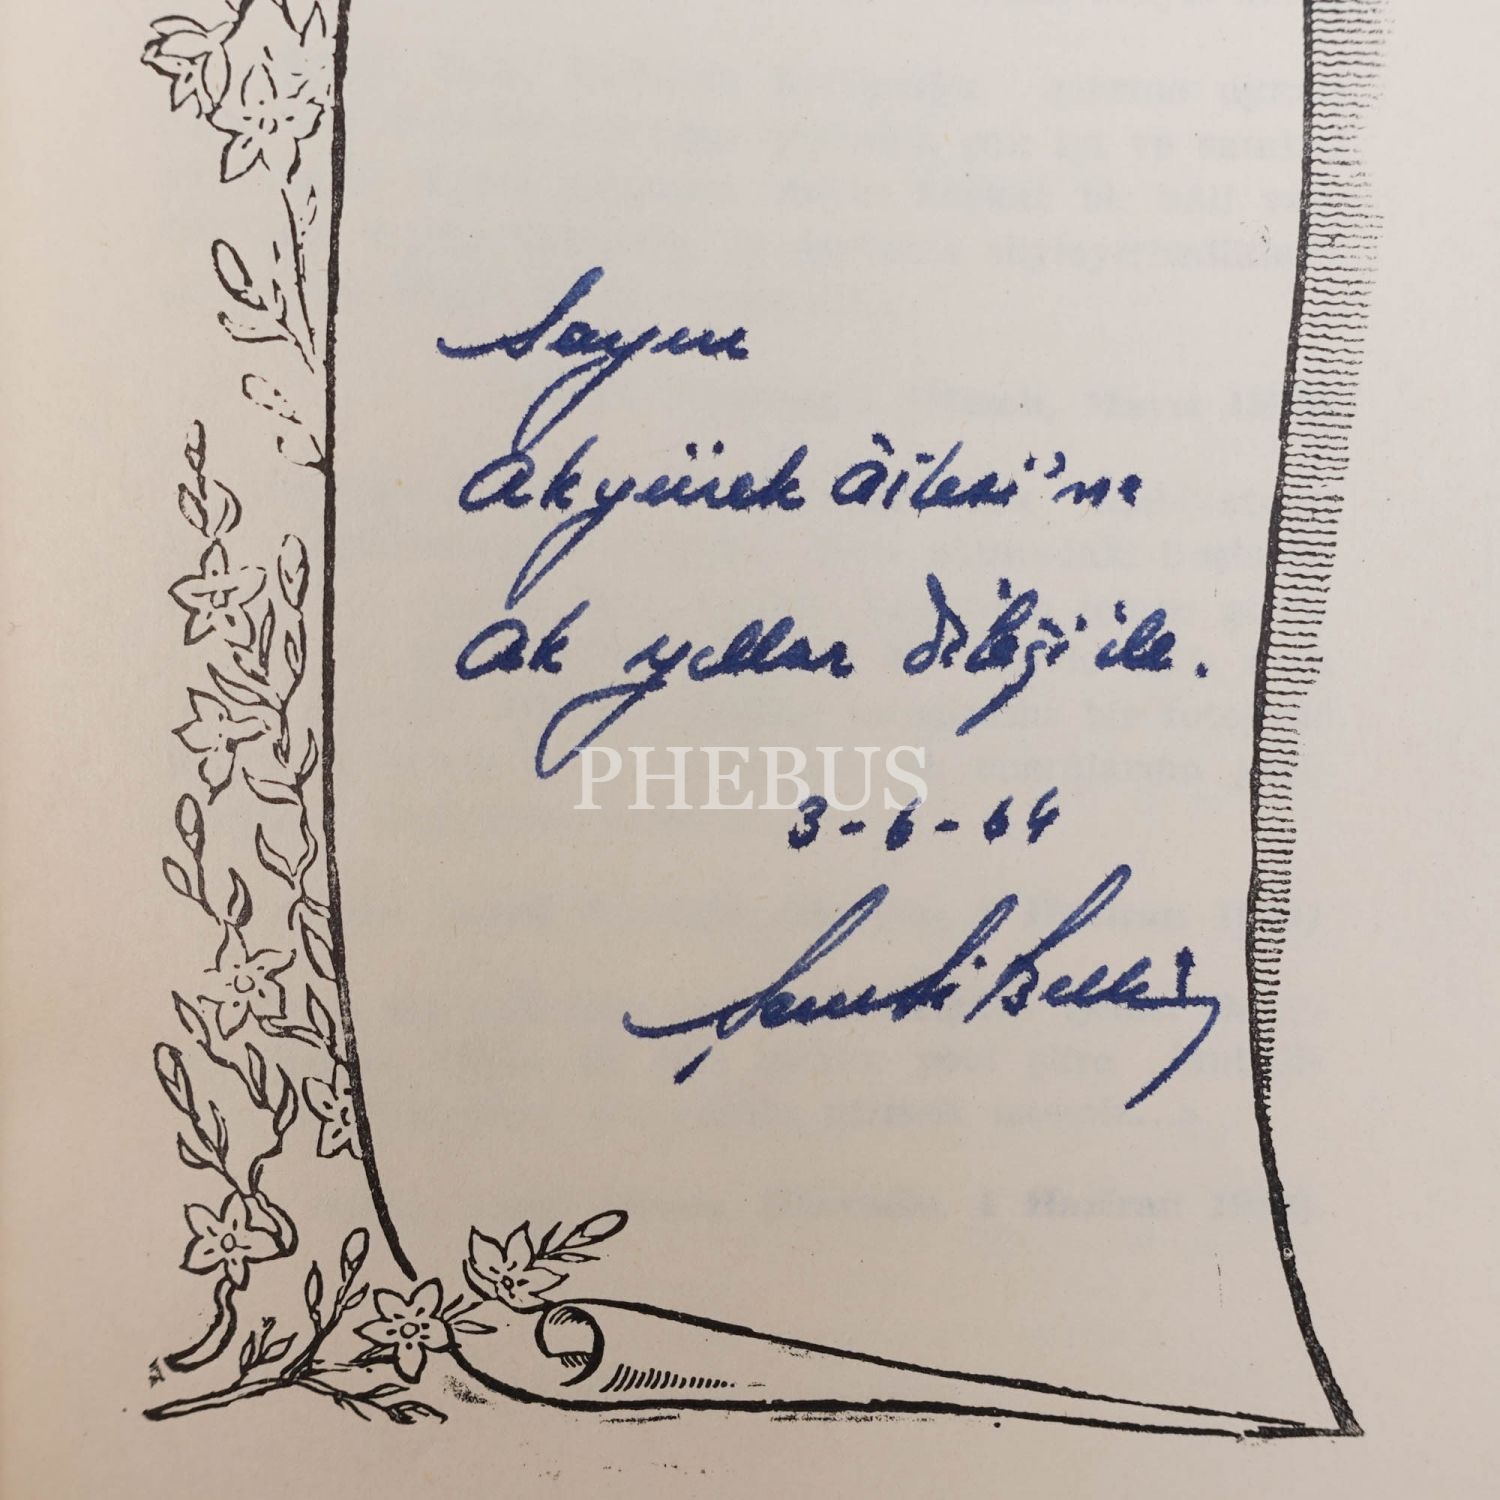 Sayın
Akyürek Âilesi'ne
Ak yıllar dileği ile.
PHEBUS
3-6-64
Şemsi Belli